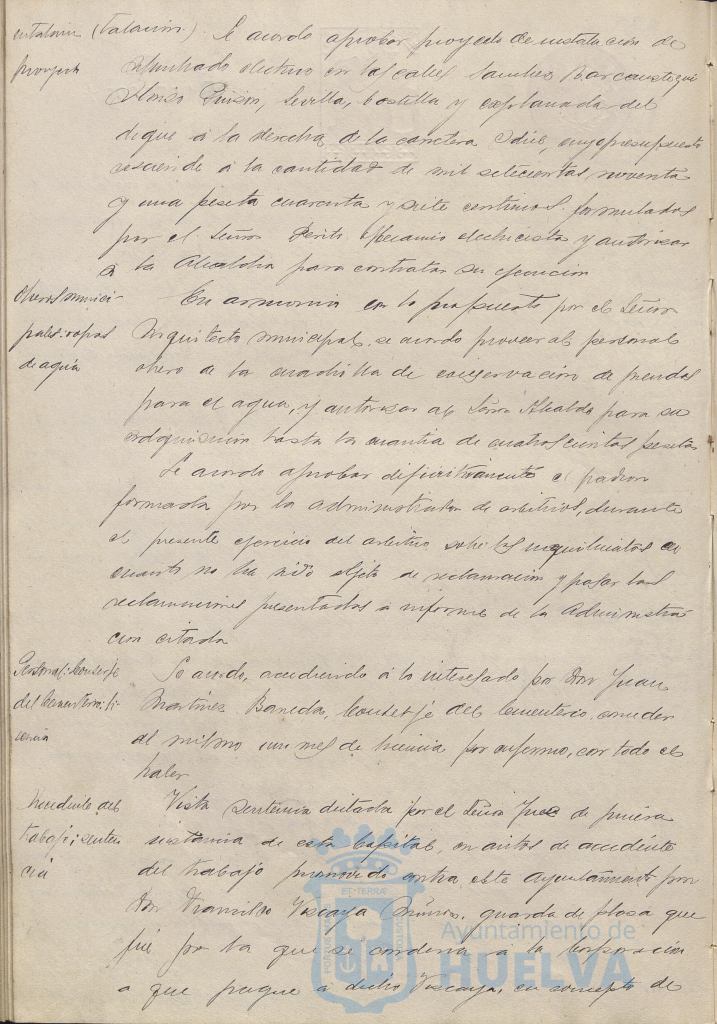 instalación (Valación) Se acordo aprobar proyecto de instalación de
proyecto
alumbrado electrico en las calles Sanchez Barcaiztegui
Alonso Pinzon, Sevilla, Castilla y explanada del
dique a la derecha de la carretera Odiel, cuyo presupuesto
asciende á la cantidad de mil setecientas noventa
y una peseta cuarenta y siete centimos formulados
por el Señor Perito Mecanico electricista y autorizar
á la Alcaldia para contratar su ejecucion
Obras munici-
pales: ropas
de agua
En armonia con lo propuesto por el Señor
Arquitecto municipal, se acordo proveer al personal
obrero de la cuadrilla de conservación de prendas
para el agua, y autorizar al Señor Alcalde para su
adquisicion hasta la cuantia de cuatrocientas pesetas
Se acordo aprobar definitivamente el padron
formado por la administracion de arbitrios, durante
el presente ejercicio del arbitrio sobre los inquilinatos en
cuanto no ha sido objeto de reclamacion y pasar las
reclamaciones presentadas a informe de la Administra-
cion citada
Personal: Conserje
del Cementerio: li-
cencia
Se acordo, accediendo á lo interesado por Don Juan
Martinez Baneda, Conserje del Cementerio, conceder
al mismo un mes de licencia por enfermo, con todo el
haber
Accidente del
trabajo; senten
cia
Vista sentencia dictada por el Señor Juez de primera
instancia de esta Capital, en autos de accidente
del trabajo promovido contra este Ayuntamiento por
Don Francisco Vizcaya Muñoz, guarda de plaza que
fué por la que se condena á la Corporacion
a que pague á dicho Vizcaya, en concepto de
Ayuntamiento de
HUELVA